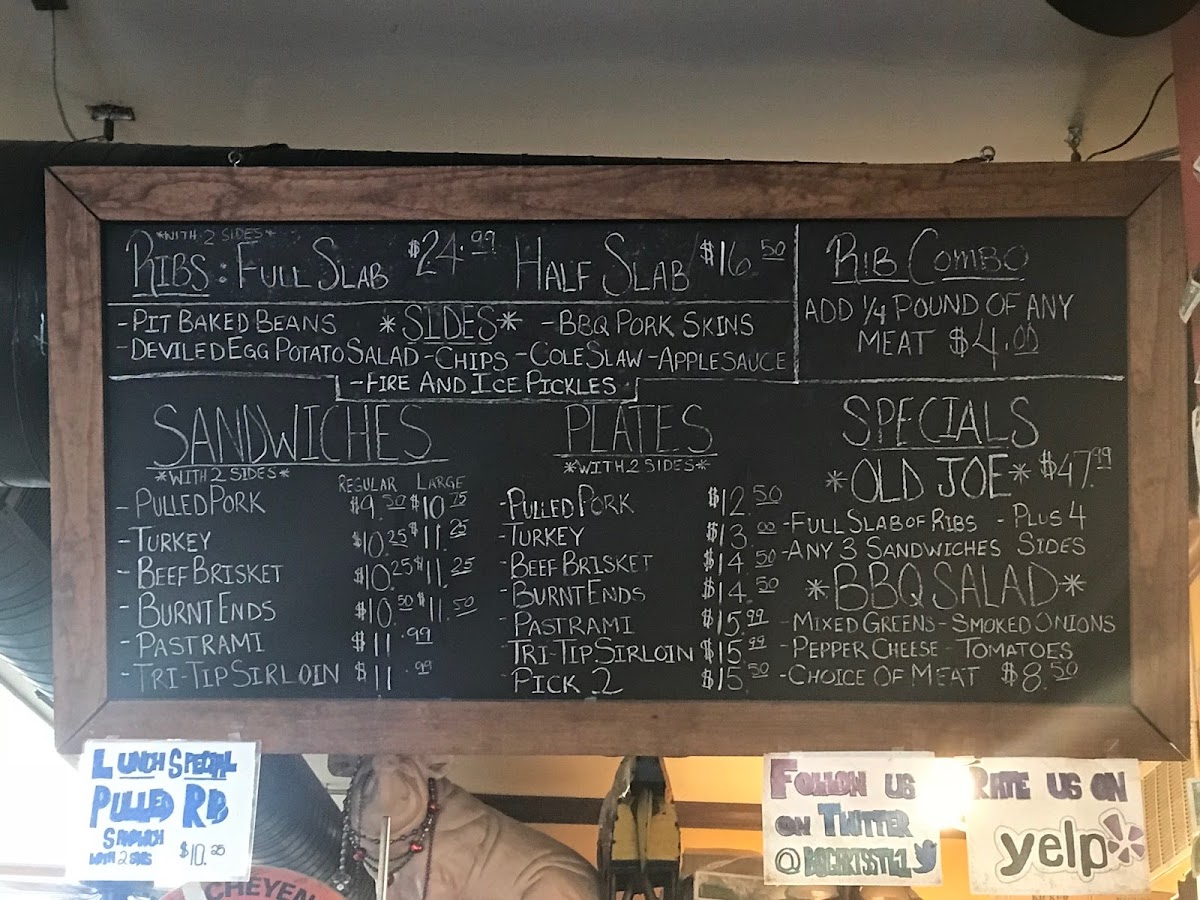 *WITH 2 SIDES*
RIBS: FULL SLAB $24.99 HALF SLAB $16.50
-PIT BAKED BEANS *SIDES* -BBQ PORK SKINS
-DEVILED EGG POTATO SALAD -CHIPS -COLE SLAW -APPLESAUCE
-FIRE AND ICE PICKLES
RIB COMBO
ADD 1/4 POUND OF ANY
MEAT $4.00
SANDWICHES
*WITH 2 SIDES*
REGULAR LARGE
-PULLED PORK $9.50 $10.75
-TURKEY $10.25 $11.25
-BEEF BRISKET $10.25 $11.25
-BURNT ENDS $10.50 $11.50
-PASTRAMI $11.99
-TRI-TIP SIRLOIN $11.99
PLATES
*WITH 2 SIDES*
-PULLED PORK $12.50
-TURKEY $13.00
-BEEF BRISKET $14.50
-BURNT ENDS $14.50
-PASTRAMI $15.99
-TRI-TIP SIRLOIN $15.99
-PICK 2 $15.50
SPECIALS
*OLD JOE* $47.99
-FULL SLAB OF RIBS -PLUS 4
-ANY 3 SANDWICHES SIDES
*BBQ SALAD*
-MIXED GREENS -SMOKED ONIONS
-PEPPER CHEESE -TOMATOES
-CHOICE OF MEAT $8.50
LUNCH SPECIAL
PULLED RIB
SANDWICH
WITH 2 SIDES $10.25
FOLLOW US
ON TWITTER
RATE US ON
yelp
CHEYEN